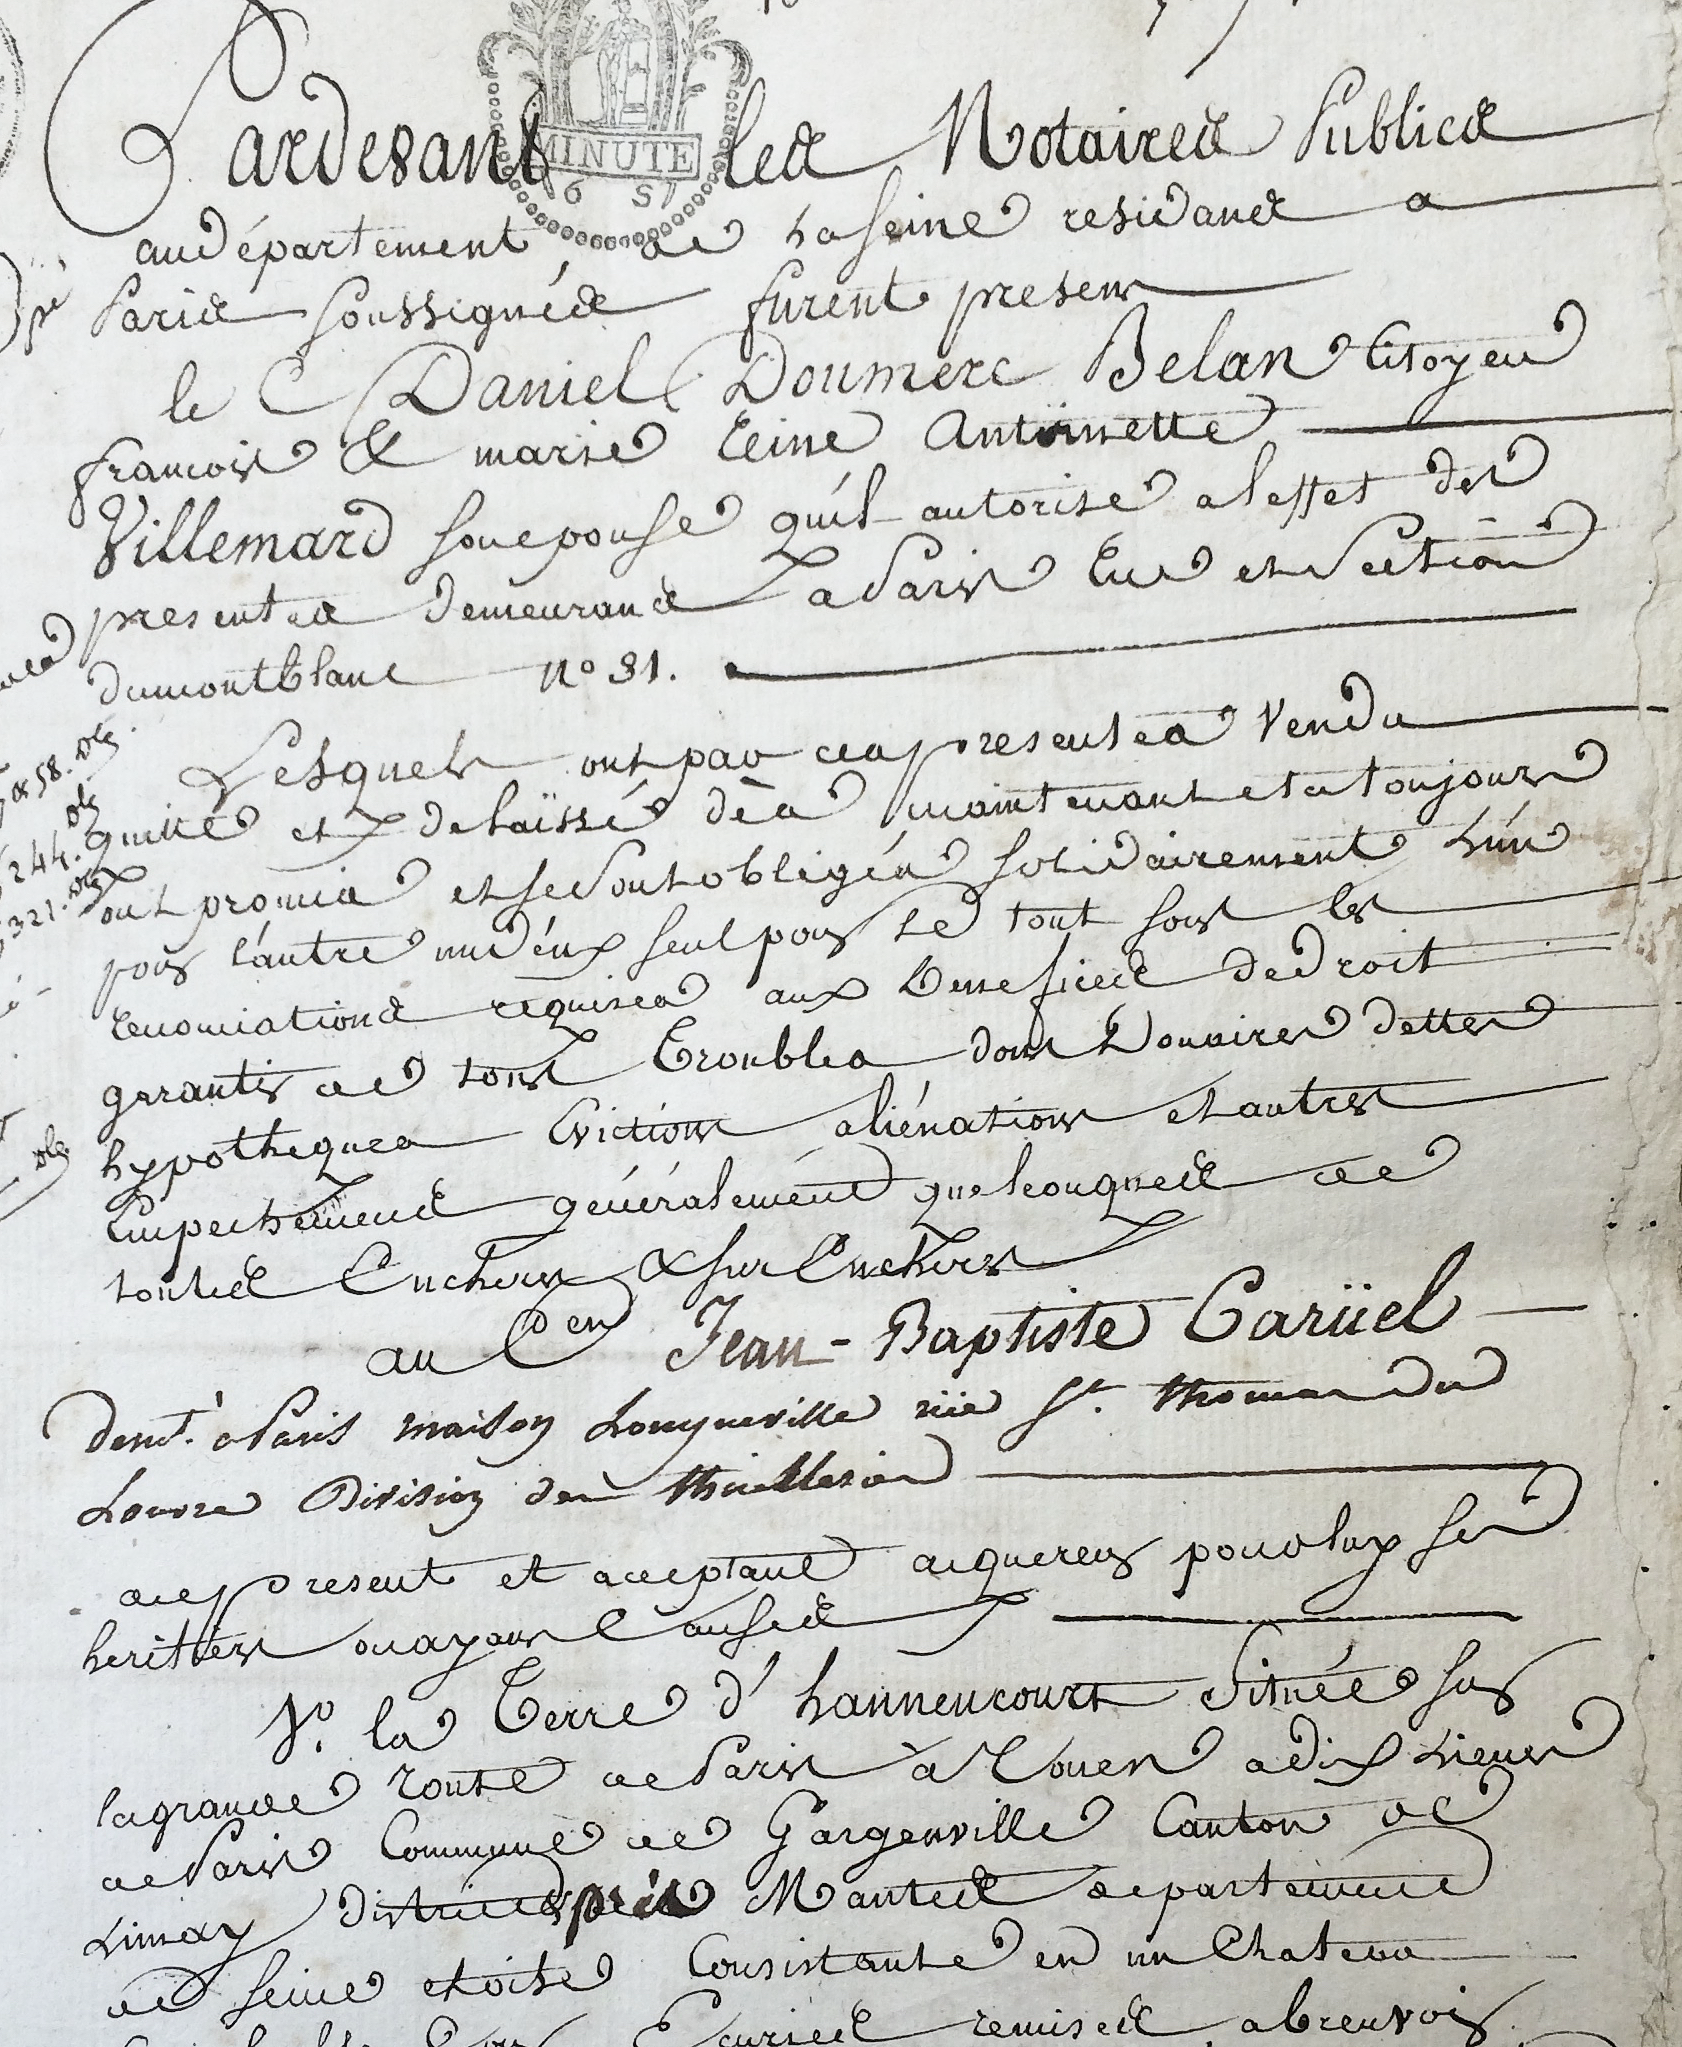 MINUTE
Pardevant les Notaires Publics
au département de la Seine residans a
Paris soussignés furent presens
le C Daniel Doumerc Belan Citoyen
francois & marie Reine Antoinette
Villemard son epouse qu'il autorise a leffet des
presentes demeurans a Paris Rue et Section
du montblanc n° 31.
Lesquels ont par ces presentes Vendu
quitté et delaïssé dès maintenant et a toujours
ont promis et se sont obligés solidairement L'un
pour l'autre un d'eux seul pour Le tout sous les
renonciations requises aux Benefices de Droit
garantir de tous Troubles dons Douaires dettes
hypotheques Evictions aliénations et autres
Empechemens généralement quelconques de
toutes Encheres & sur Encheres
au Cen Jean-Baptiste Carüel
demt. a Paris maison Longueville rüe St. thomas du
Louvre Division des thuilleries
a ce present et acceptant acquereur pour luy ses
heritiers ou ayans Causes
1°. la Terre d'hanneucourt Située sur
la grande route de Paris à Rouen a dix Lieues
de Paris Commune de Gargenville Canton de
Limay près Mantes departement
de Seine et oise Consistante en un Chateau
Ecuries remises abreuvoir
244.
321.